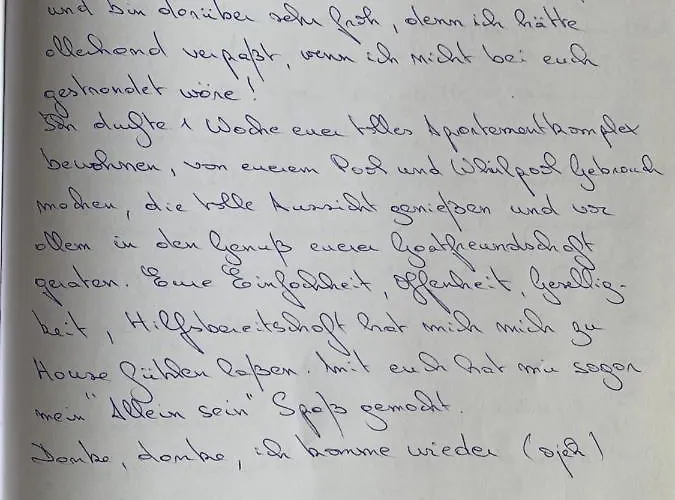 und bin darüber sehr froh, denn ich hätte
allerhand verpaßt, wenn ich nicht bei euch
gestrandet wäre!
Ich durfte 1 Woche euer tolles Apartementkomplex
bewohnen, von euerem Pool und Whirlpool Gebrauch
machen, die tolle Aussicht genießen und vor
allem in den Genuß eurer Gastfreundschaft
geraten. Eure Einfachheit, Offenheit, Gesellig-
keit, Hilfsbereitschaft hat mich mich zu
Hause fühlen laßen. Mit euch hat mir sogar
mein "Allein sein" Spaß gemacht.
Danke, danke, ich komme wieder